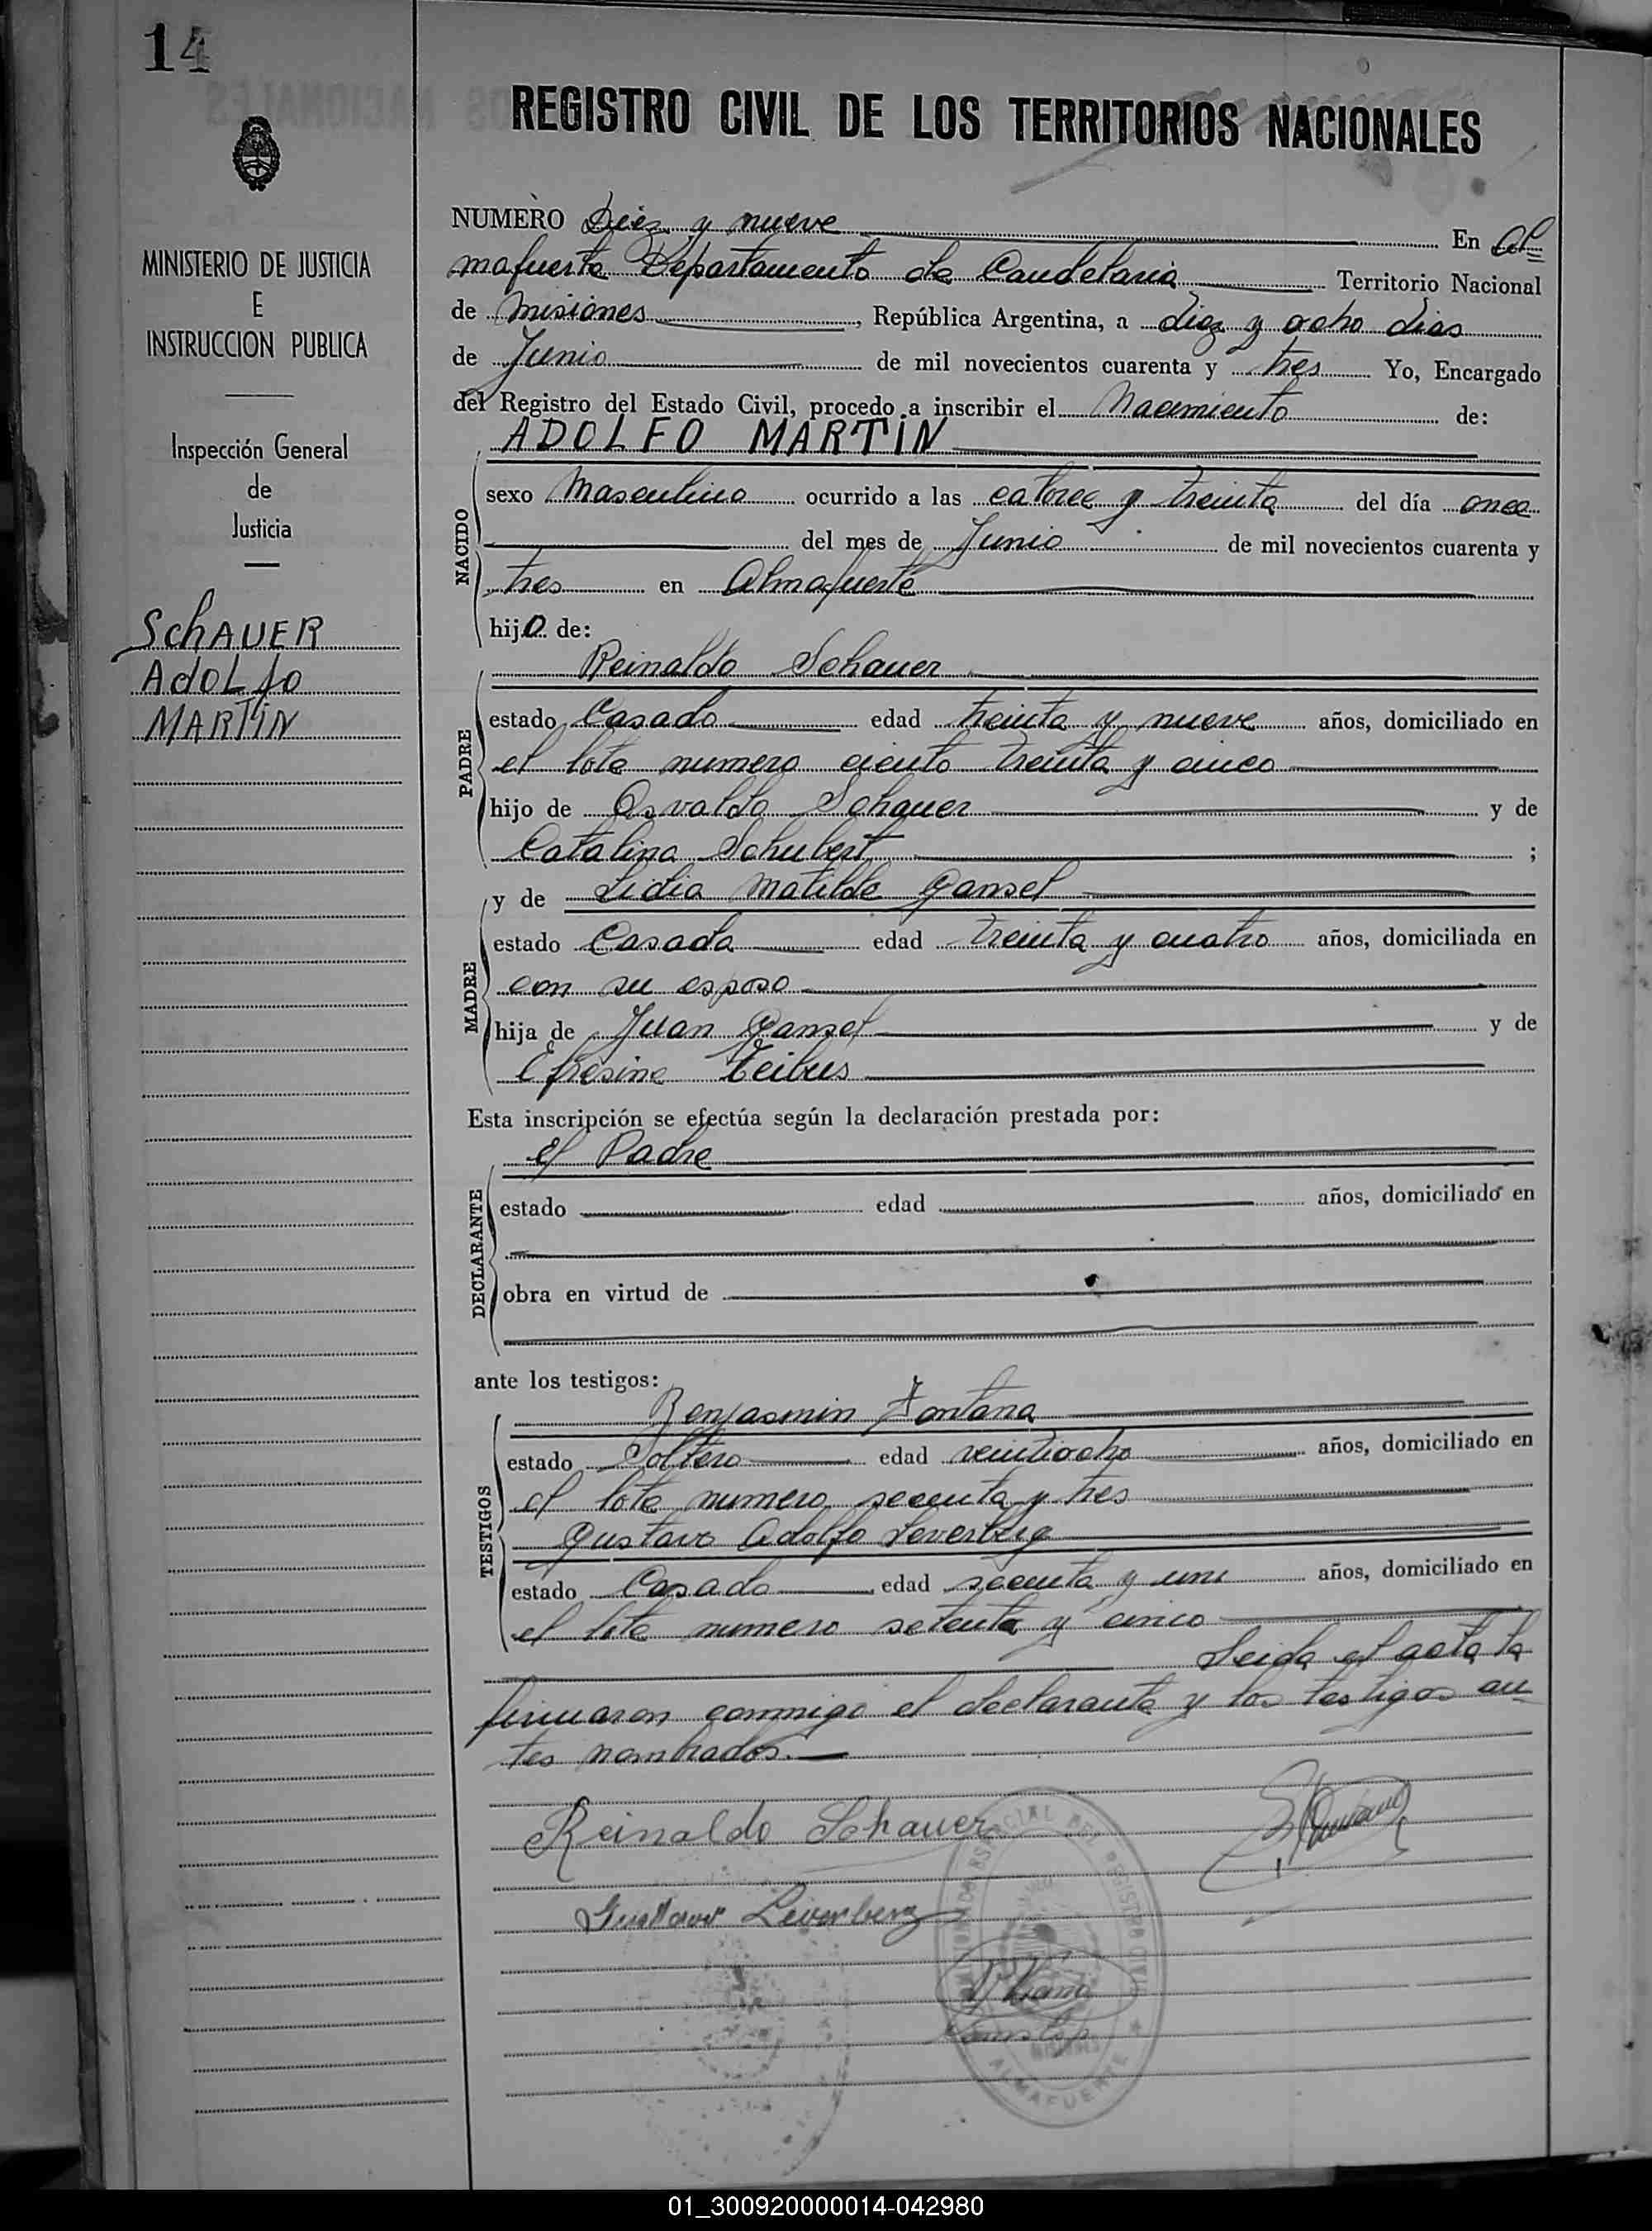 14
REGISTRO CIVIL DE LOS TERRITORIOS NACIONALES
MINISTERIO DE JUSTICIA
E
INSTRUCCION PUBLICA
Inspección General
de
Justicia
SchAUER
Adolfo
MARTIN
NUMERO Diez y nueve En Al=
mafuerte Departamento de Candelaria Territorio Nacional
de Misiones, República Argentina, a diez y ocho dias
de Junio de mil novecientos cuarenta y tres Yo, Encargado
del Registro del Estado Civil, procedo a inscribir el Nacimiento de:
ADOLFO MARTIN
NACIDO
sexo Masculino ocurrido a las catorce y treinta del día once
del mes de Junio de mil novecientos cuarenta y
tres en Almafuerte
hijo de:
Reinaldo Schauer
PADRE
estado Casado edad treinta y nueve años, domiciliado en
el lote numero ciento treinta y cinco
hijo de Osvaldo Schauer y de
Catalina Schubert ;
y de Lidia Matilde Gansel
MADRE
estado Casada edad treinta y cuatro años, domiciliada en
con su esposo
hija de Juan Gansel y de
Efresine
Esta inscripción se efectúa según la declaración prestada por:
el Padre
DECLARANTE
estado edad años, domiciliado en
obra en virtud de
ante los testigos:
Benjasmin Fontana
TESTIGOS
estado Soltero edad veintiocho años, domiciliado en
el lote numero secenta y tres
Gustavo Adolfo
estado Casado edad secenta y uno años, domiciliado en
el lote numero setenta y cinco
Leida el acta la
firmaron conmigo el declarante y los testigos an=
tes nombrados.
Reinaldo Schauer
Gustav
REGISTRO CIVIL
MISIONES
ALMAFUERTE
01_300920000014-042980